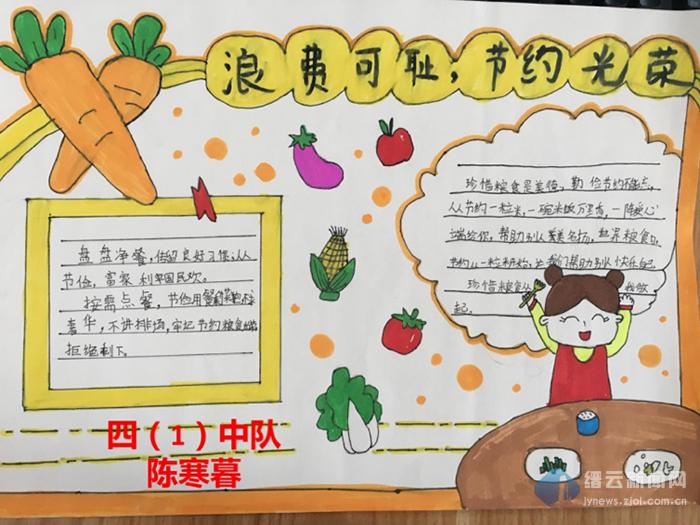 浪费可耻,节约光荣
盘盘净餐,保留良好习惯从人
节俭,富家利军国民欢。
按需点餐,节俭用餐
奢华,不讲排场,牢记节约粮食
拒绝剩下。
珍惜粮食是美德,勤俭节约不能忘。
人人节约一粒米,一碗米饭万里香,一阵爱心
送给你,帮助别人美名扬,世界粮食日,
节约一粒
珍惜粮食从
起。
四(1)中队
陈寒暮
缙云新闻网
jynews.zjol.com.cn